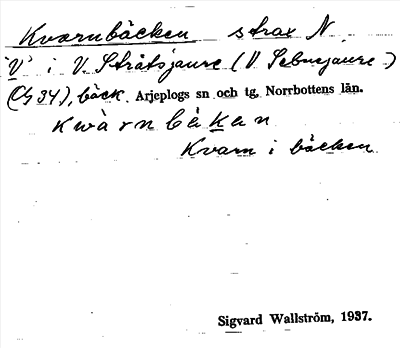 Kvarnbäcken strax N
'V' i V. Stråtsjaure (V Sebnesjaure)
(Cg 34), bäck. Arjeplogs sn och tg, Norrbottens län.
kwàrnbèkan
Kvarn i bäcken
Sigvard Wallström, 1937.